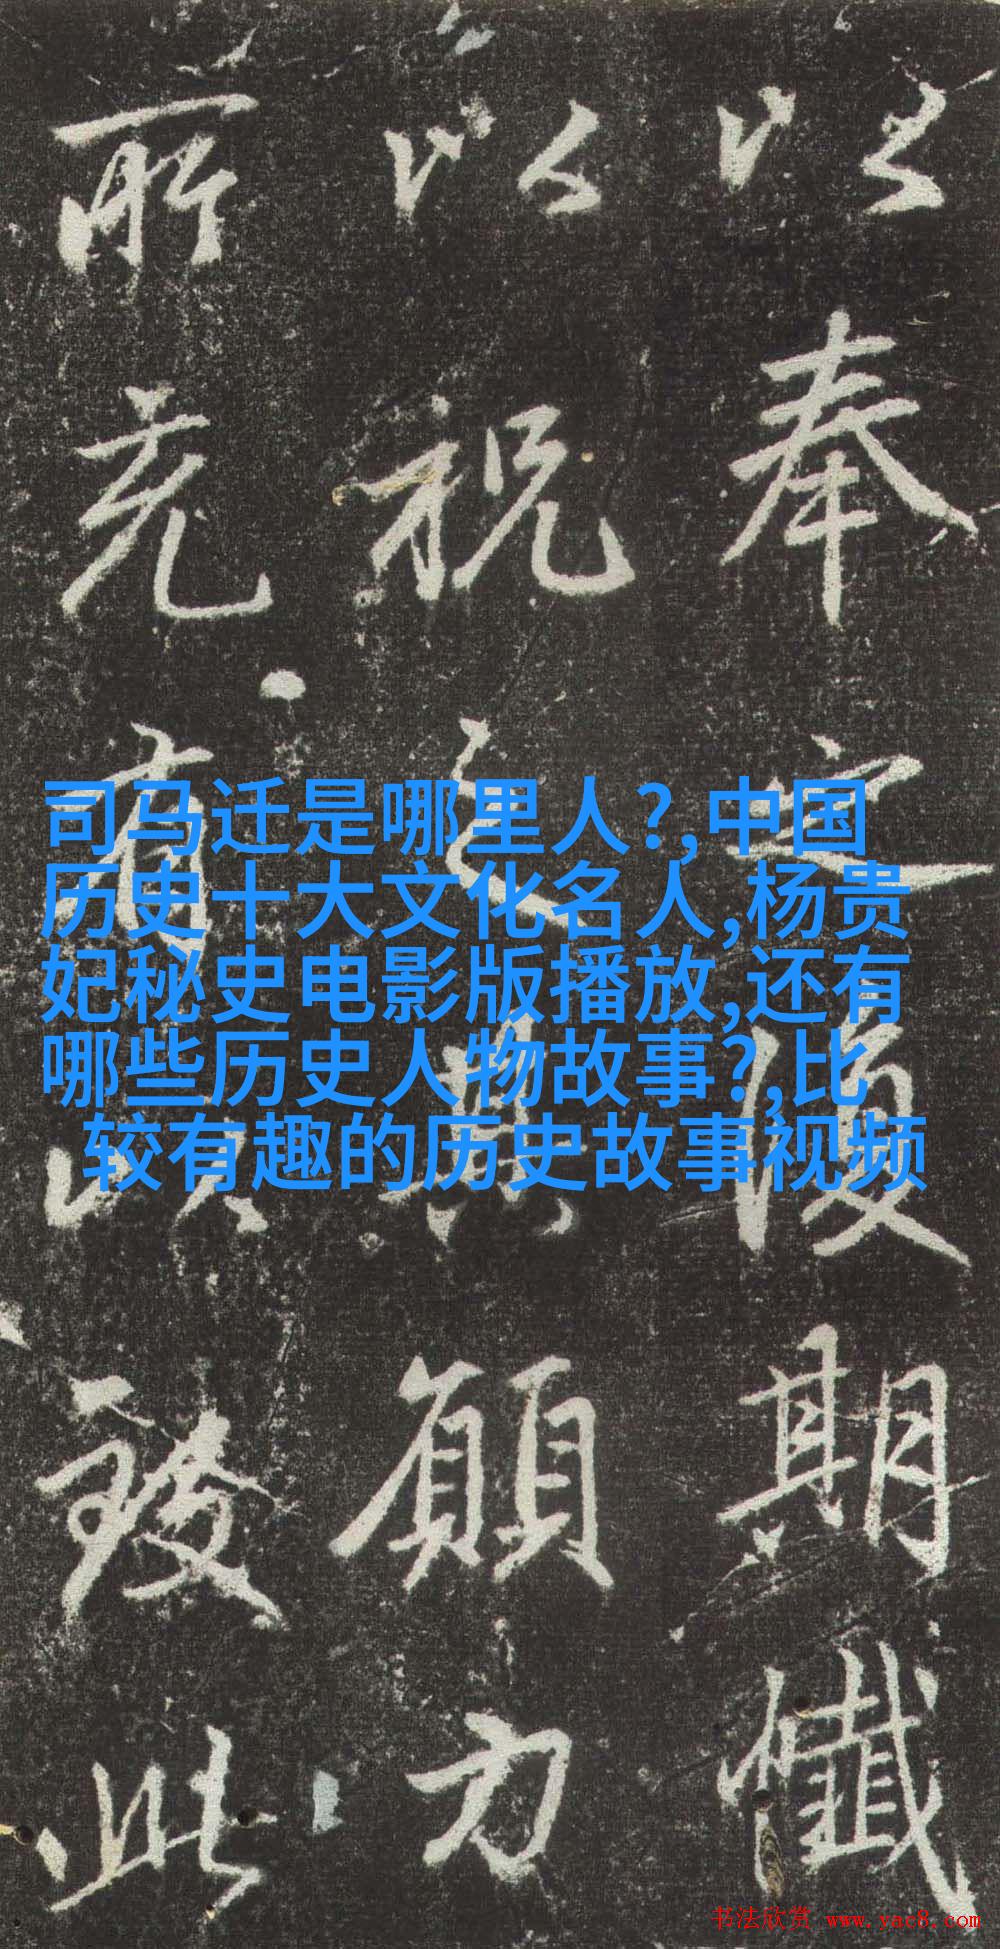 以奉定復期懺
以祝願力
所有以致此
司马迁是哪里人?,中国
历史十大文化名人,杨贵
妃秘史电影版播放,还有
哪些历史人物故事?,比
较有趣的历史故事视频
书法欣赏 www.yac8.com